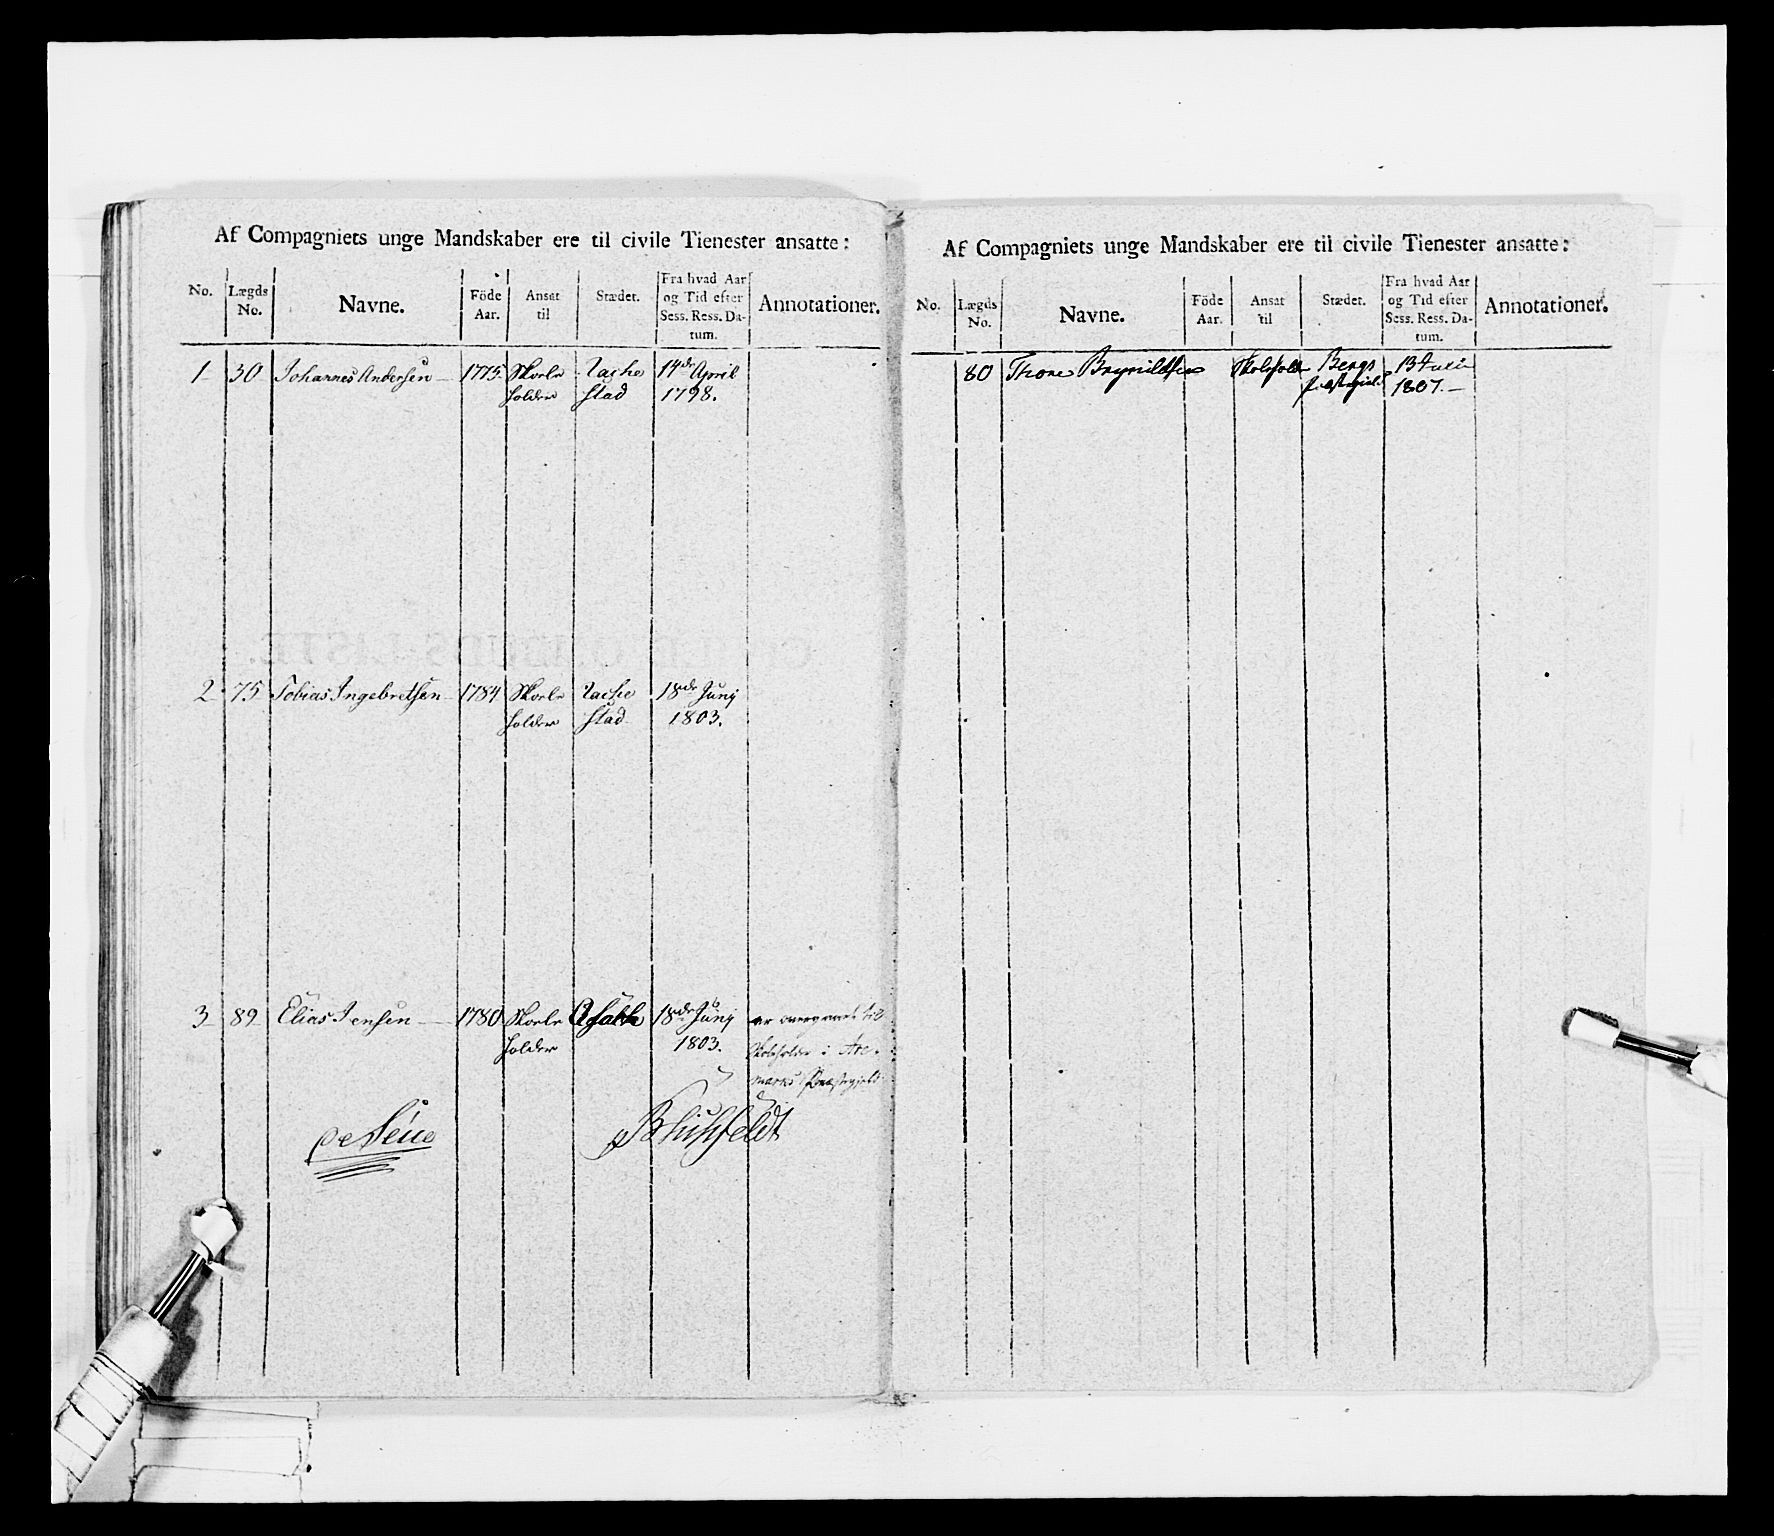 Af Compagniets unge Mandskaber ere til civile Tienester ansatte:
No. Lægds No. Navne. Föde Aar. Ansat til Stædet. Fra hvad Aar og Tid efter Sess. Ress. Datum. Annotationer.
1 30 Johannes Andersen 1775 Skole 14de April
holder stad 1798.
2 75 Tobias Ingebretsen 1784 Skole 18de Junij
holder stad 1803.
3 89 Elias Jensen 1780 Skole 18de Junij er til
holder 1803. Skoleholder i Are-
marks Præstegield
Af Compagniets unge Mandskaber ere til civile Tienester ansatte:
No. Lægds No. Navne. Föde Aar. Ansat til Stædet. Fra hvad Aar og Tid efter Sess. Ress. Datum. Annotationer.
80 Thore Brynildsen Skolehold Bergs 13 Julii
Præstegield 1807.